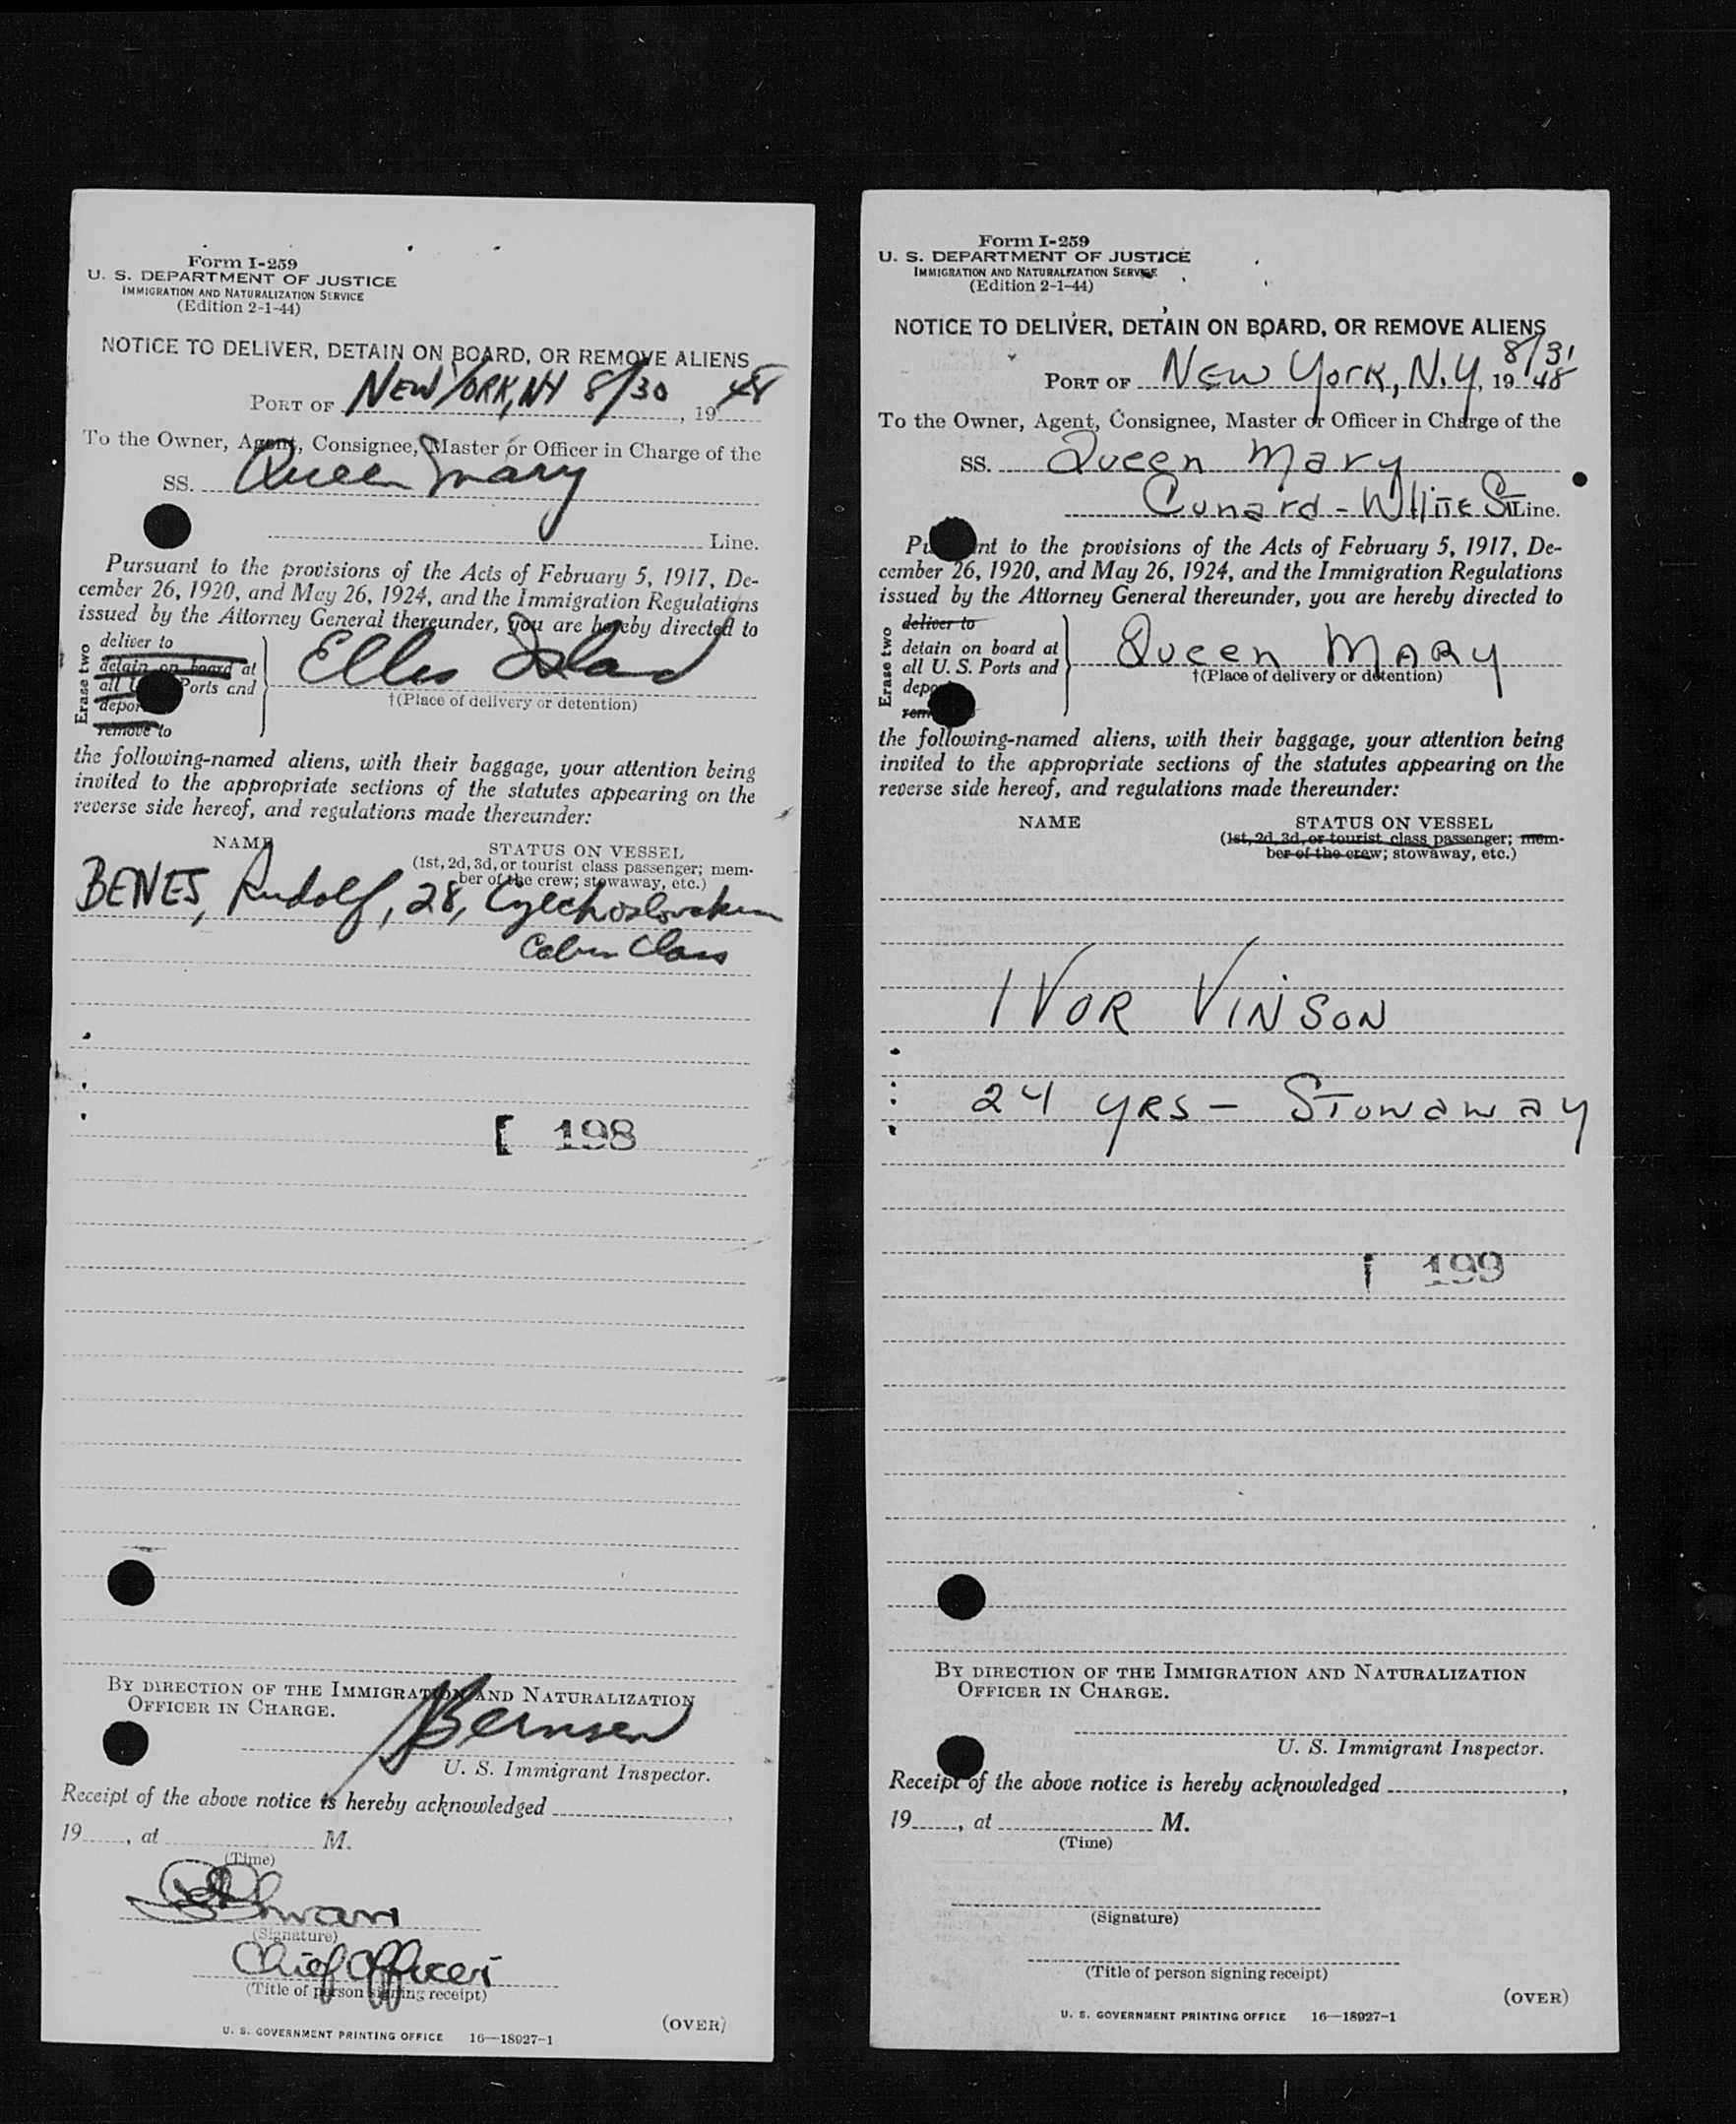 Form I-259
U. S. DEPARTMENT OF JUSTICE
IMMIGRATION AND NATURALIZATION SERVICE
(Edition 2-1-44)
NOTICE TO DELIVER, DETAIN ON BOARD, OR REMOVE ALIENS
PORT OF NEW YORK, NY 8/30, 19 48
To the Owner, Agent, Consignee, Master or Officer in Charge of the
SS. Queen Mary
Line.
Pursuant to the provisions of the Acts of February 5, 1917, De-
cember 26, 1920, and May 26, 1924, and the Immigration Regulations
issued by the Attorney General thereunder, you are hereby directed to
Erase two
deliver to
detain on board at
all U Ports and
depor
remove to
Ellis Island
†(Place of delivery or detention)
the following-named aliens, with their baggage, your attention being
invited to the appropriate sections of the statutes appearing on the
reverse side hereof, and regulations made thereunder:
NAME
STATUS ON VESSEL
(1st, 2d, 3d, or tourist class passenger; mem-
ber of the crew; stowaway, etc.)
BENES, Rudolf, 28, Czechoslovakian
Cabin Class
[ 198
BY DIRECTION OF THE IMMIGRATION AND NATURALIZATION
OFFICER IN CHARGE.
Bernsen
U. S. Immigrant Inspector.
Receipt of the above notice is hereby acknowledged ,
19 , at M.
(Time)
(Signature)
Chief Officer
(Title of person signing receipt)
(OVER)
U. S. GOVERNMENT PRINTING OFFICE 16—18927-1
Form I-259
U. S. DEPARTMENT OF JUSTICE
IMMIGRATION AND NATURALIZATION SERVICE
(Edition 2-1-44)
NOTICE TO DELIVER, DETAIN ON BOARD, OR REMOVE ALIENS
8/31
PORT OF New York, N.Y, 19 48
To the Owner, Agent, Consignee, Master or Officer in Charge of the
SS. Queen Mary
Cunard - White St Line.
Pu nt to the provisions of the Acts of February 5, 1917, De-
cember 26, 1920, and May 26, 1924, and the Immigration Regulations
issued by the Attorney General thereunder, you are hereby directed to
Erase two
deliver to
detain on board at
all U. S. Ports and
depo
rem
Queen MARY
†(Place of delivery or detention)
the following-named aliens, with their baggage, your attention being
invited to the appropriate sections of the statutes appearing on the
reverse side hereof, and regulations made thereunder:
NAME
STATUS ON VESSEL
(1st, 2d, 3d, or tourist class passenger; mem-
ber of the crew; stowaway, etc.)
IVOR VINSON
24 yrs - Stowaway
199
BY DIRECTION OF THE IMMIGRATION AND NATURALIZATION
OFFICER IN CHARGE.
U. S. Immigrant Inspector.
Receipt of the above notice is hereby acknowledged ,
19 , at M.
(Time)
(Signature)
(Title of person signing receipt)
(OVER)
U. S. GOVERNMENT PRINTING OFFICE 16—18927-1